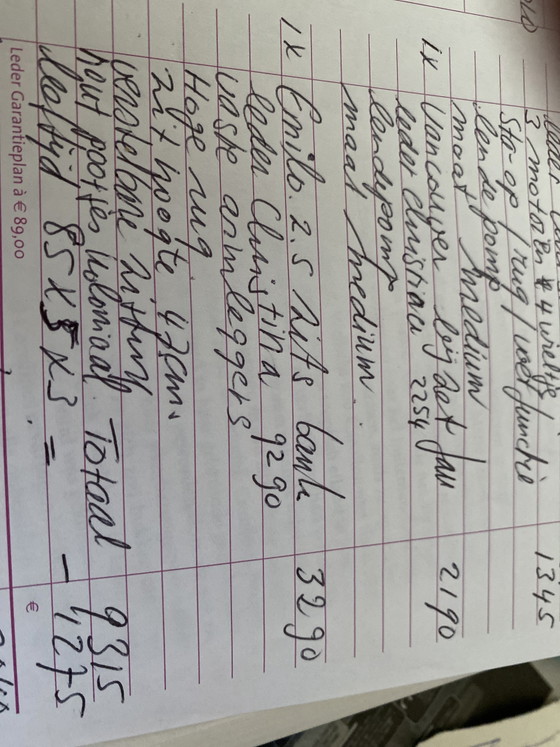 3 motoren + 4 wielen
Sta-op / rug / voet functie 1345
lende pomp
maat medium
1x Vancouver bij zet fau 2190
leder christina 2254
lendepomp
maat medium.
1x Emilo. 2.5 zits bank 3290
leder Christina 9290
vaste armleggers
Hoge rug
zit hoogte 47cm.
verstelbare zitting
hout pootjes koloniaal. Totaal 9315
leeftijd 85 x 5 x 3 = - 4275
Leder Garantieplan à € 89,00 €